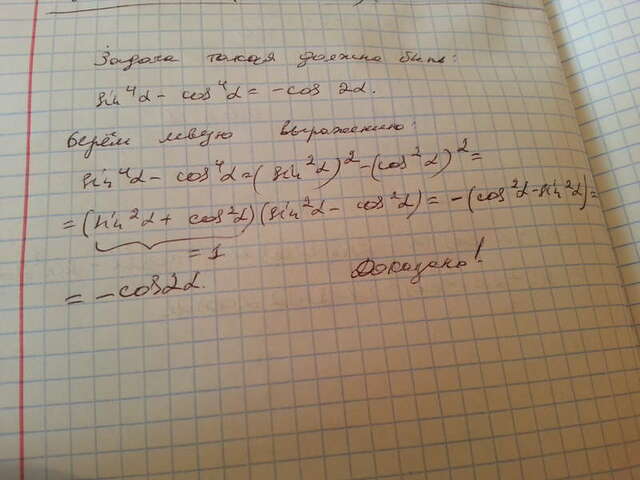 Задача такая должна быть:
sin⁴α - cos⁴α = -cos 2α.
Берём левую выражению:
sin⁴α - cos⁴α = (sin²α)² - (cos²α)² =
= (sin²α + cos²α)(sin²α - cos²α) = -(cos²α - sin²α) =
= 1
= -cos2α. Доказано!